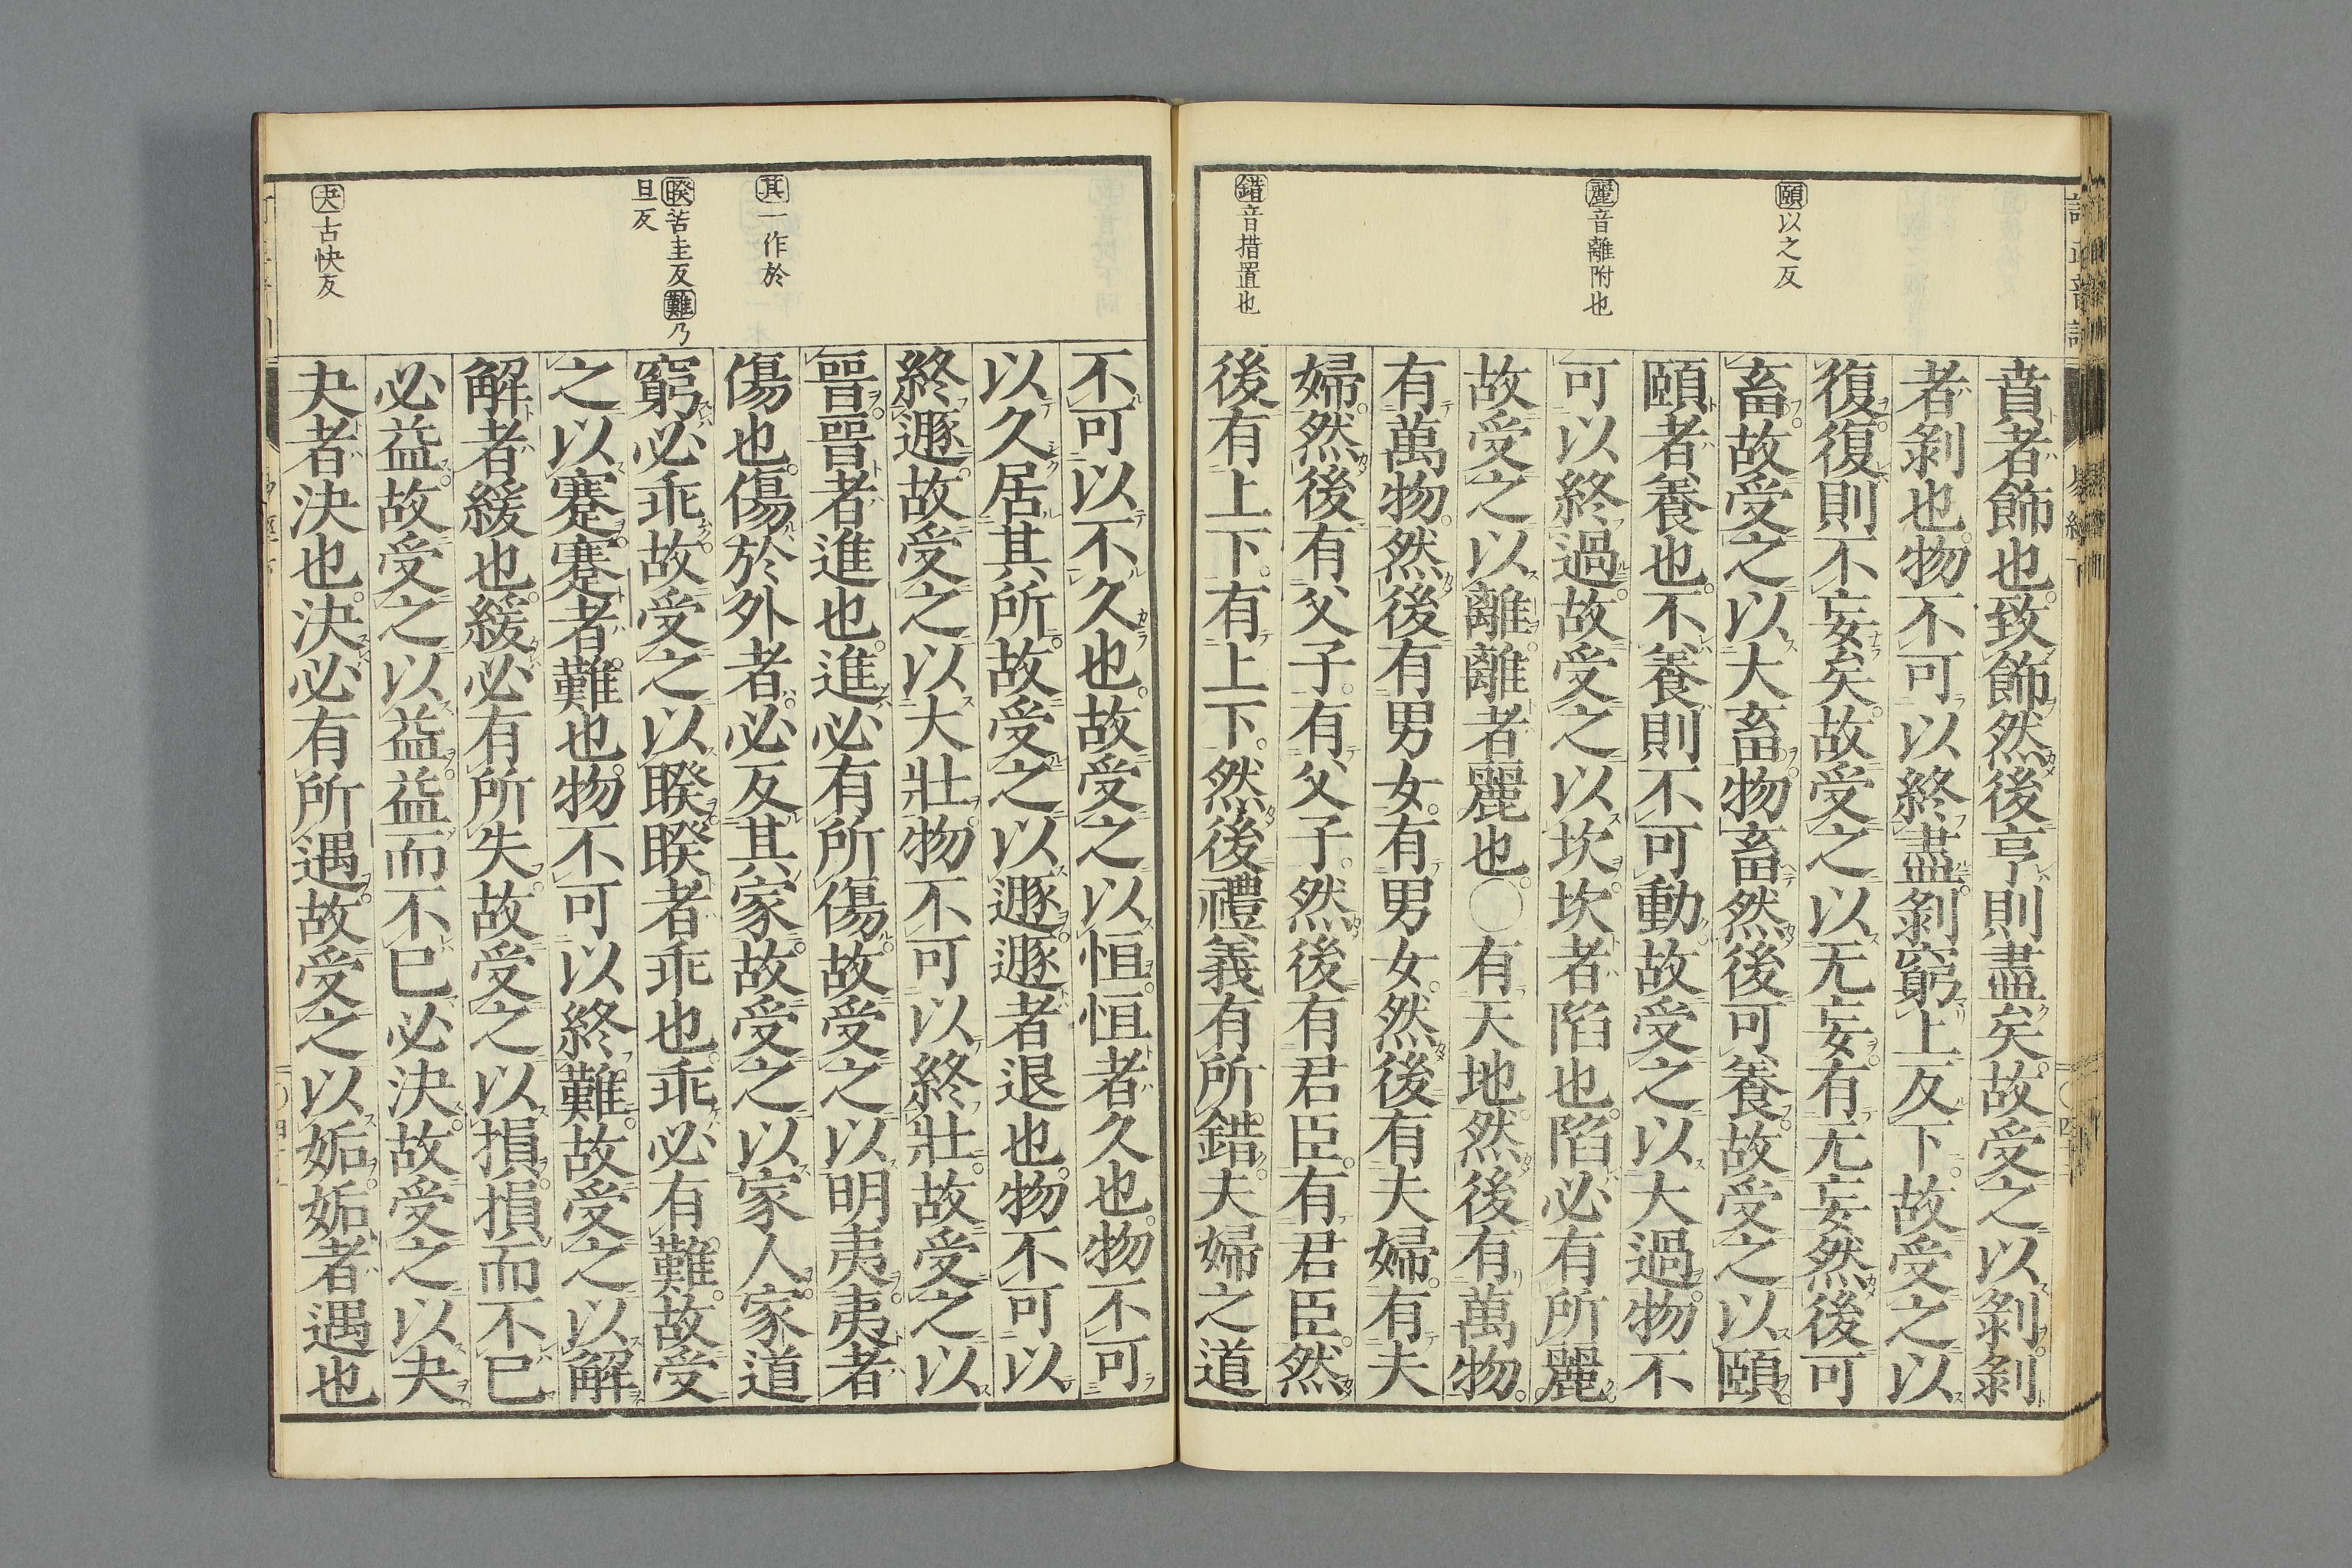 頤以之反
麗音離附也
錯音措置也
賁者飾也致飾然後亨則盡矣故受之以剝剝
者剝也物不可以終盡剝窮上反下故受之以
復復則不妄矣故受之以无妄有无妄然後可
畜故受之以大畜物畜然後可養故受之以頤
頤者養也不養則不可動故受之以大過物不
可以終過故受之以坎坎者陷也陷必有所麗
故受之以離離者麗也〇有天地然後有萬物
有萬物然後有男女有男女然後有夫婦有夫
婦然後有父子有父子然後有君臣有君臣然
後有上下有上下然後禮義有所錯夫婦之道
其一作於
睽苦圭反難乃
旦反
夬古快反
不可以不久也故受之以恒恒者久也物不可
以久居其所故受之以遯遯者退也物不可以
終遯故受之以大壯物不可以終壯故受之以
晉晉者進也進必有所傷故受之以明夷夷者
傷也傷於外者必反其家故受之以家人家道
窮必乖故受之以睽睽者乖也乖必有難故受
之以蹇蹇者難也物不可以終難故受之以解
解者緩也緩必有所失故受之以損損而不已
必益故受之以益益而不已必決故受之以夬
夬者決也決必有所遇故受之以姤姤者遇也